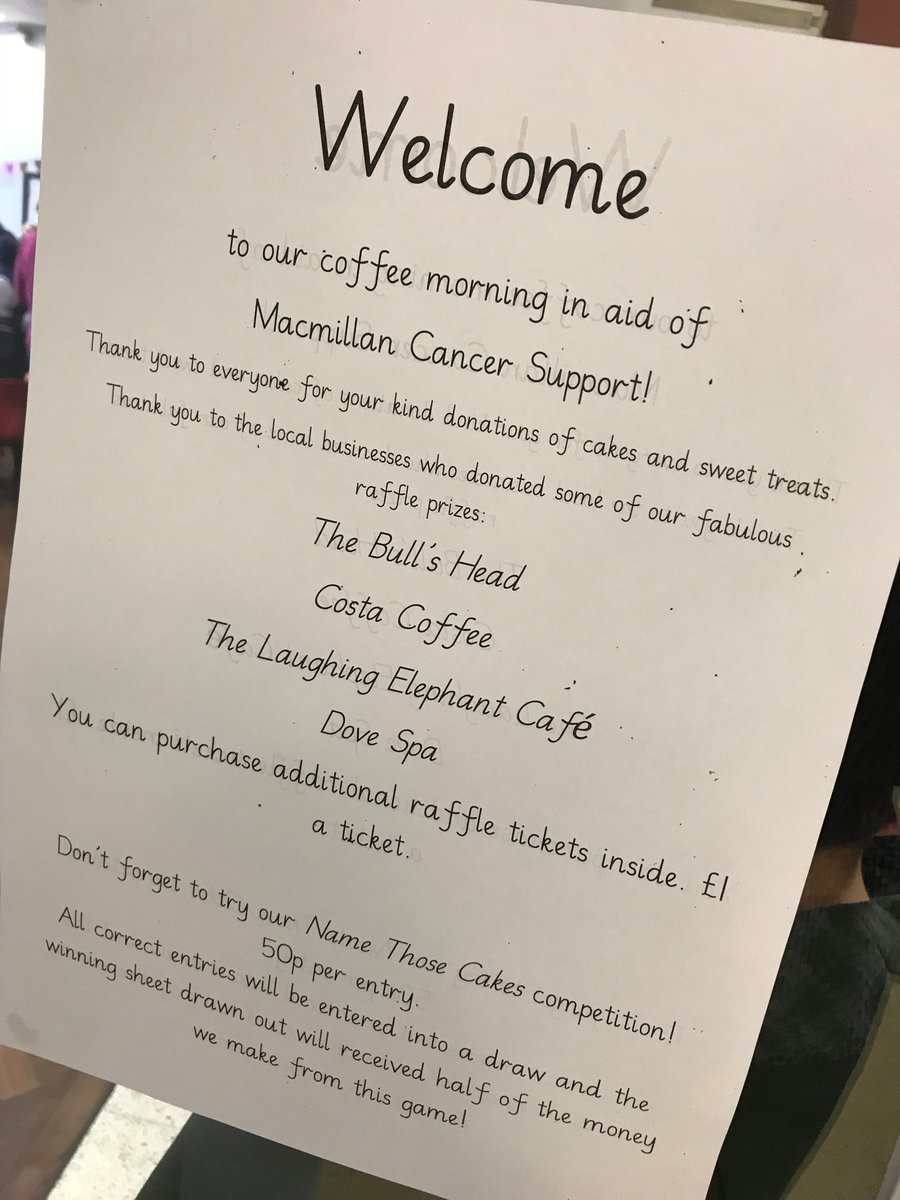 Welcome
to our coffee morning in aid of
Macmillan Cancer Support!
Thank you to everyone for your kind donations of cakes and sweet treats.
Thank you to the local businesses who donated some of our fabulous
raffle prizes:
The Bull's Head
Costa Coffee
The Laughing Elephant Café
Dove Spa
You can purchase additional raffle tickets inside. £1
a ticket.
Don't forget to try our Name Those Cakes competition!
50p per entry.
All correct entries will be entered into a draw and the
winning sheet drawn out will received half of the money
we make from this game!